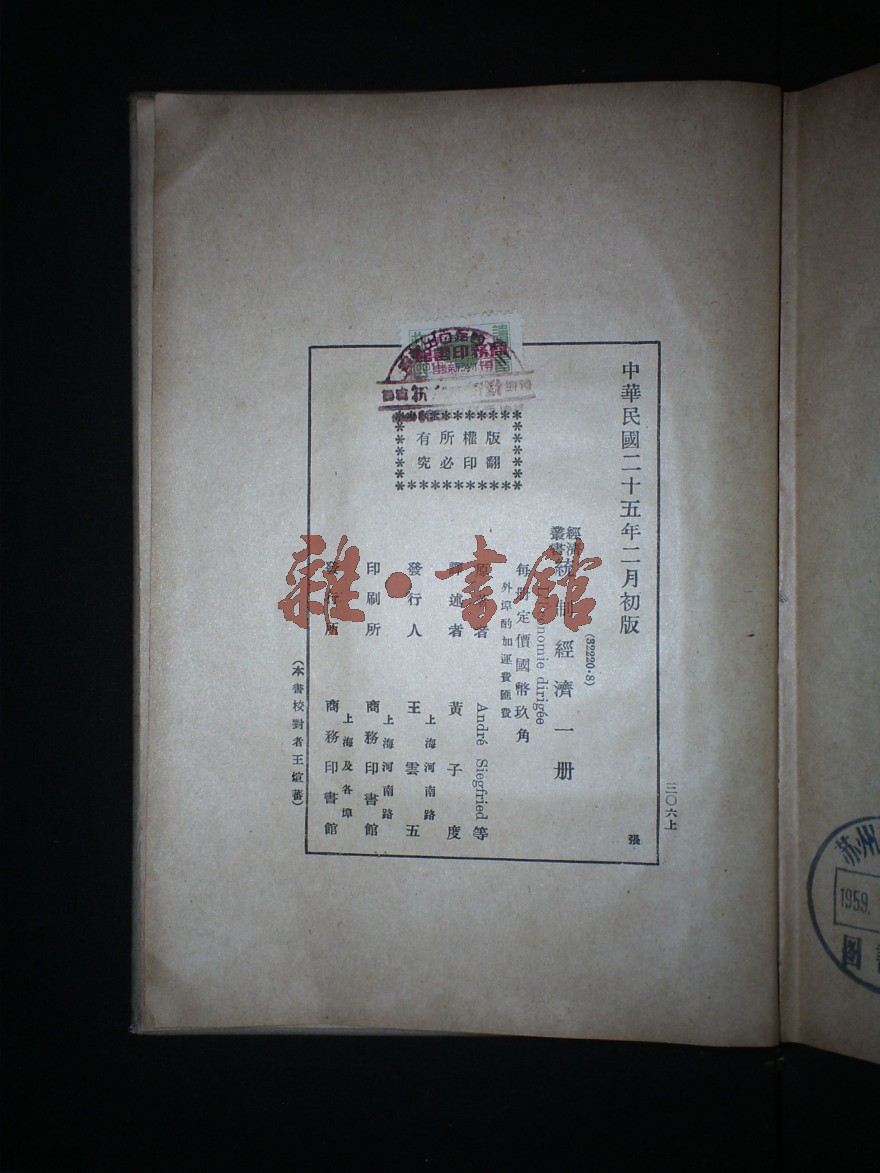 中華民國二十五年二月初版
(32220·8)
經濟叢書 統制經濟一册
L'économie dirigée
每册定價國幣玖角
外埠酌加運費匯費
版權所有
翻印必究
原著者 André Siegfried 等
譯述者 黃子度
發行人 王雲五
上海河南路
印刷所 商務印書館
上海河南路
發行所 商務印書館
上海及各埠
(本書校對者王煊蕃)
三〇六上
張
雜·書館
商務印書館
苏州
1959.
圖